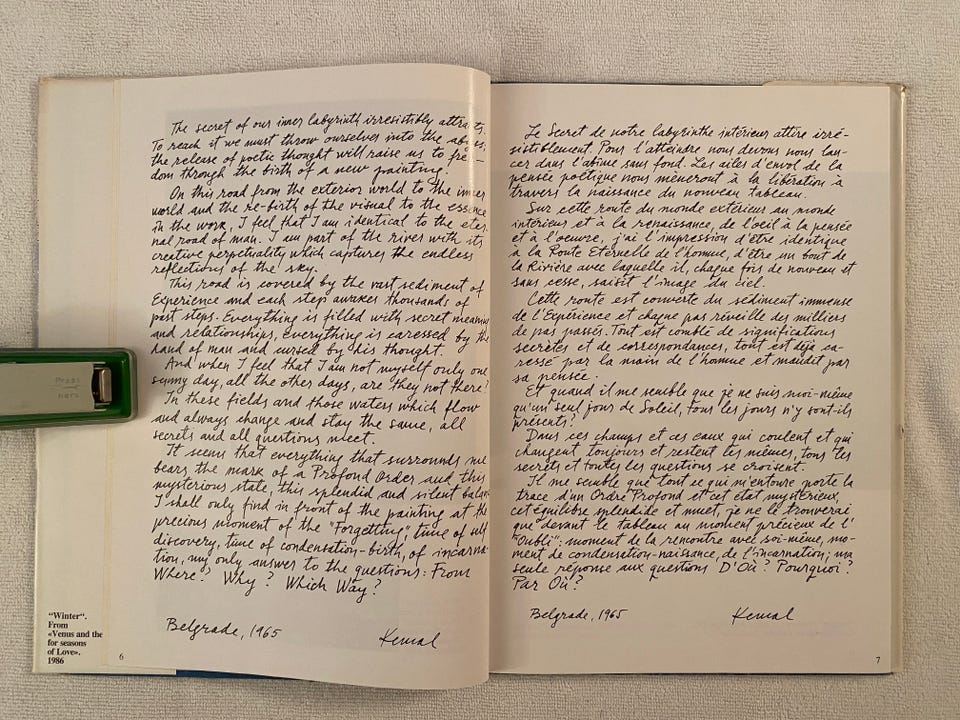 The secret of our inner labyrinth irresistibly attracts.
To reach it we must throw ourselves into the abyss:
the release of poetic thought will raise us to free-
dom through the birth of a new painting.
On this road from the exterior world to the inner
world and the re-birth of the visual to the essence
in the work, I feel that I am identical to the eter-
nal road of man. I am part of the river with its
creative perpetuality which captures the endless
reflections of the sky.
This road is covered by the vast sediment of
Experience and each step awakes thousands of
past steps. Everything is filled with secret meaning
and relationships, everything is caressed by the
hand of man and cursed by his thought.
And when I feel that I am not myself only one
sunny day, all the other days, are they not there?
In these fields and those waters which flow
and always change and stay the same, all
secrets and all questions meet.
It seems that everything that surrounds me
bears the mark of a Profond Order and this
mysterious state, this splendid and silent balan
I shall only find in front of the painting at the
precious moment of the "Forgetting", time of self
discovery, time of condensation-birth, of incarna-
tion, my only answer to the questions: From
Where? Why? Which Way?
Belgrade, 1965 Kemal
"Winter".
From
«Venus and the
for seasons
of Love».
1986
6
Le Secret de notre labyrinthe intérieur attire irré-
sistiblement. Pour l'atteindre nous devons nous lan-
cer dans l'abîme sans fond. Les ailes d'envol de la
pensée poétique nous mèneront à la libération à
travers la naissance du nouveau tableau.
Sur cette route du monde extérieur au monde
intérieur et à la renaissance, de l'oeil à la pensée
et à l'oeuvre, j'ai l'impression d'être identique
à la Route Eternelle de l'homme, d'être un bout de
la Rivière avec laquelle il, chaque fois de nouveau et
sans cesse, saisit l'image du ciel.
Cette route est converte du sédiment immense
de l'Expérience et chaque pas réveille des milliers
de pas passés. Tout est comblé de significations
secrètes et de correspondances, tout est déjà ca-
ressé par la main de l'homme et maudit par
sa pensée.
Et quand il me semble que je ne suis moi-même
qu'un seul jour de Soleil, tous les jours n'y sont-ils
présents?
Dans ces champs et ces eaux qui coulent et qui
changent toujours et restent les mêmes, tous les
secrets et toutes les questions se croisent.
Il me semble que tout ce qui m'entoure porte la
trace d'un Ordre Profond et cet état mystérieux,
cet équilibre splendide et muet, je ne le trouverai
que devant le tableau au moment précieux de l'
"Oubli"; moment de la rencontre avec soi-même, mo-
ment de condensation-naissance, de l'incarnation; ma
seule réponse aux questions D'Où? Pourquoi?
Par Où?
Belgrade, 1965 Kemal
7